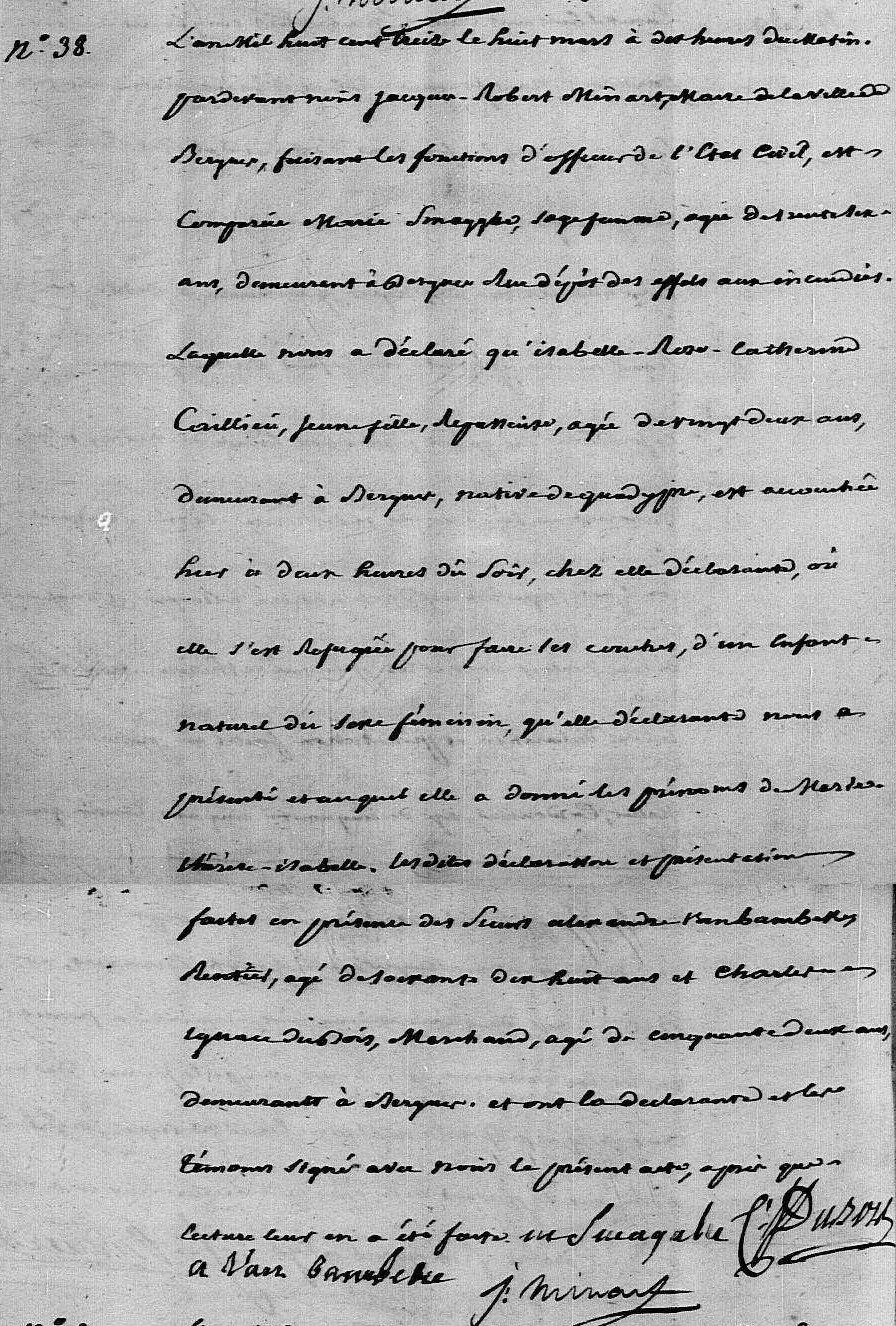 N.º 38.
L'an Mil huit cent treize le huit mars à dix heures du Matin.
pardevant nous Jacques-Robert Minart, Maire de la ville de
Bergues, faisant les fonctions d'officier de l'Etat Civil, est
Comparüe Marie Smagghe, sage femme, agée de trente six
ans, demeurant à Bergues Rue dépôt des effets aux incendies.
Laquelle nous a déclaré qu'isabelle-Rose-Catherine
Caillieu, jeune fille, Repasseuse, agée de vingt deux ans,
demeurant à Bergues, native de quadypre, est accouchée
hier à deux heures du Soir, chez elle déclarante, où
elle s'est Refugiée pour faire ses couches, d'un Enfant
naturel du sexe féminin, qu'elle déclarante nous a
présenté et auquel elle a donné les prénoms de Marie-
thérèse-isabelle. lesdites déclaration et présentation
faites en présence des Sieurs alexandre Vanbambeke
Rentier, agé de soixante dix huit ans et Charles
ignace duBois, Marchand, agé de cinquante deux ans,
demeurants à Bergues. et ont la declarante et les
témoins signés avec nous le présent acte, après que
lecture leur en a été faite. m Smagghe C. i. Dubois
a Van Bambeke
j. Minart